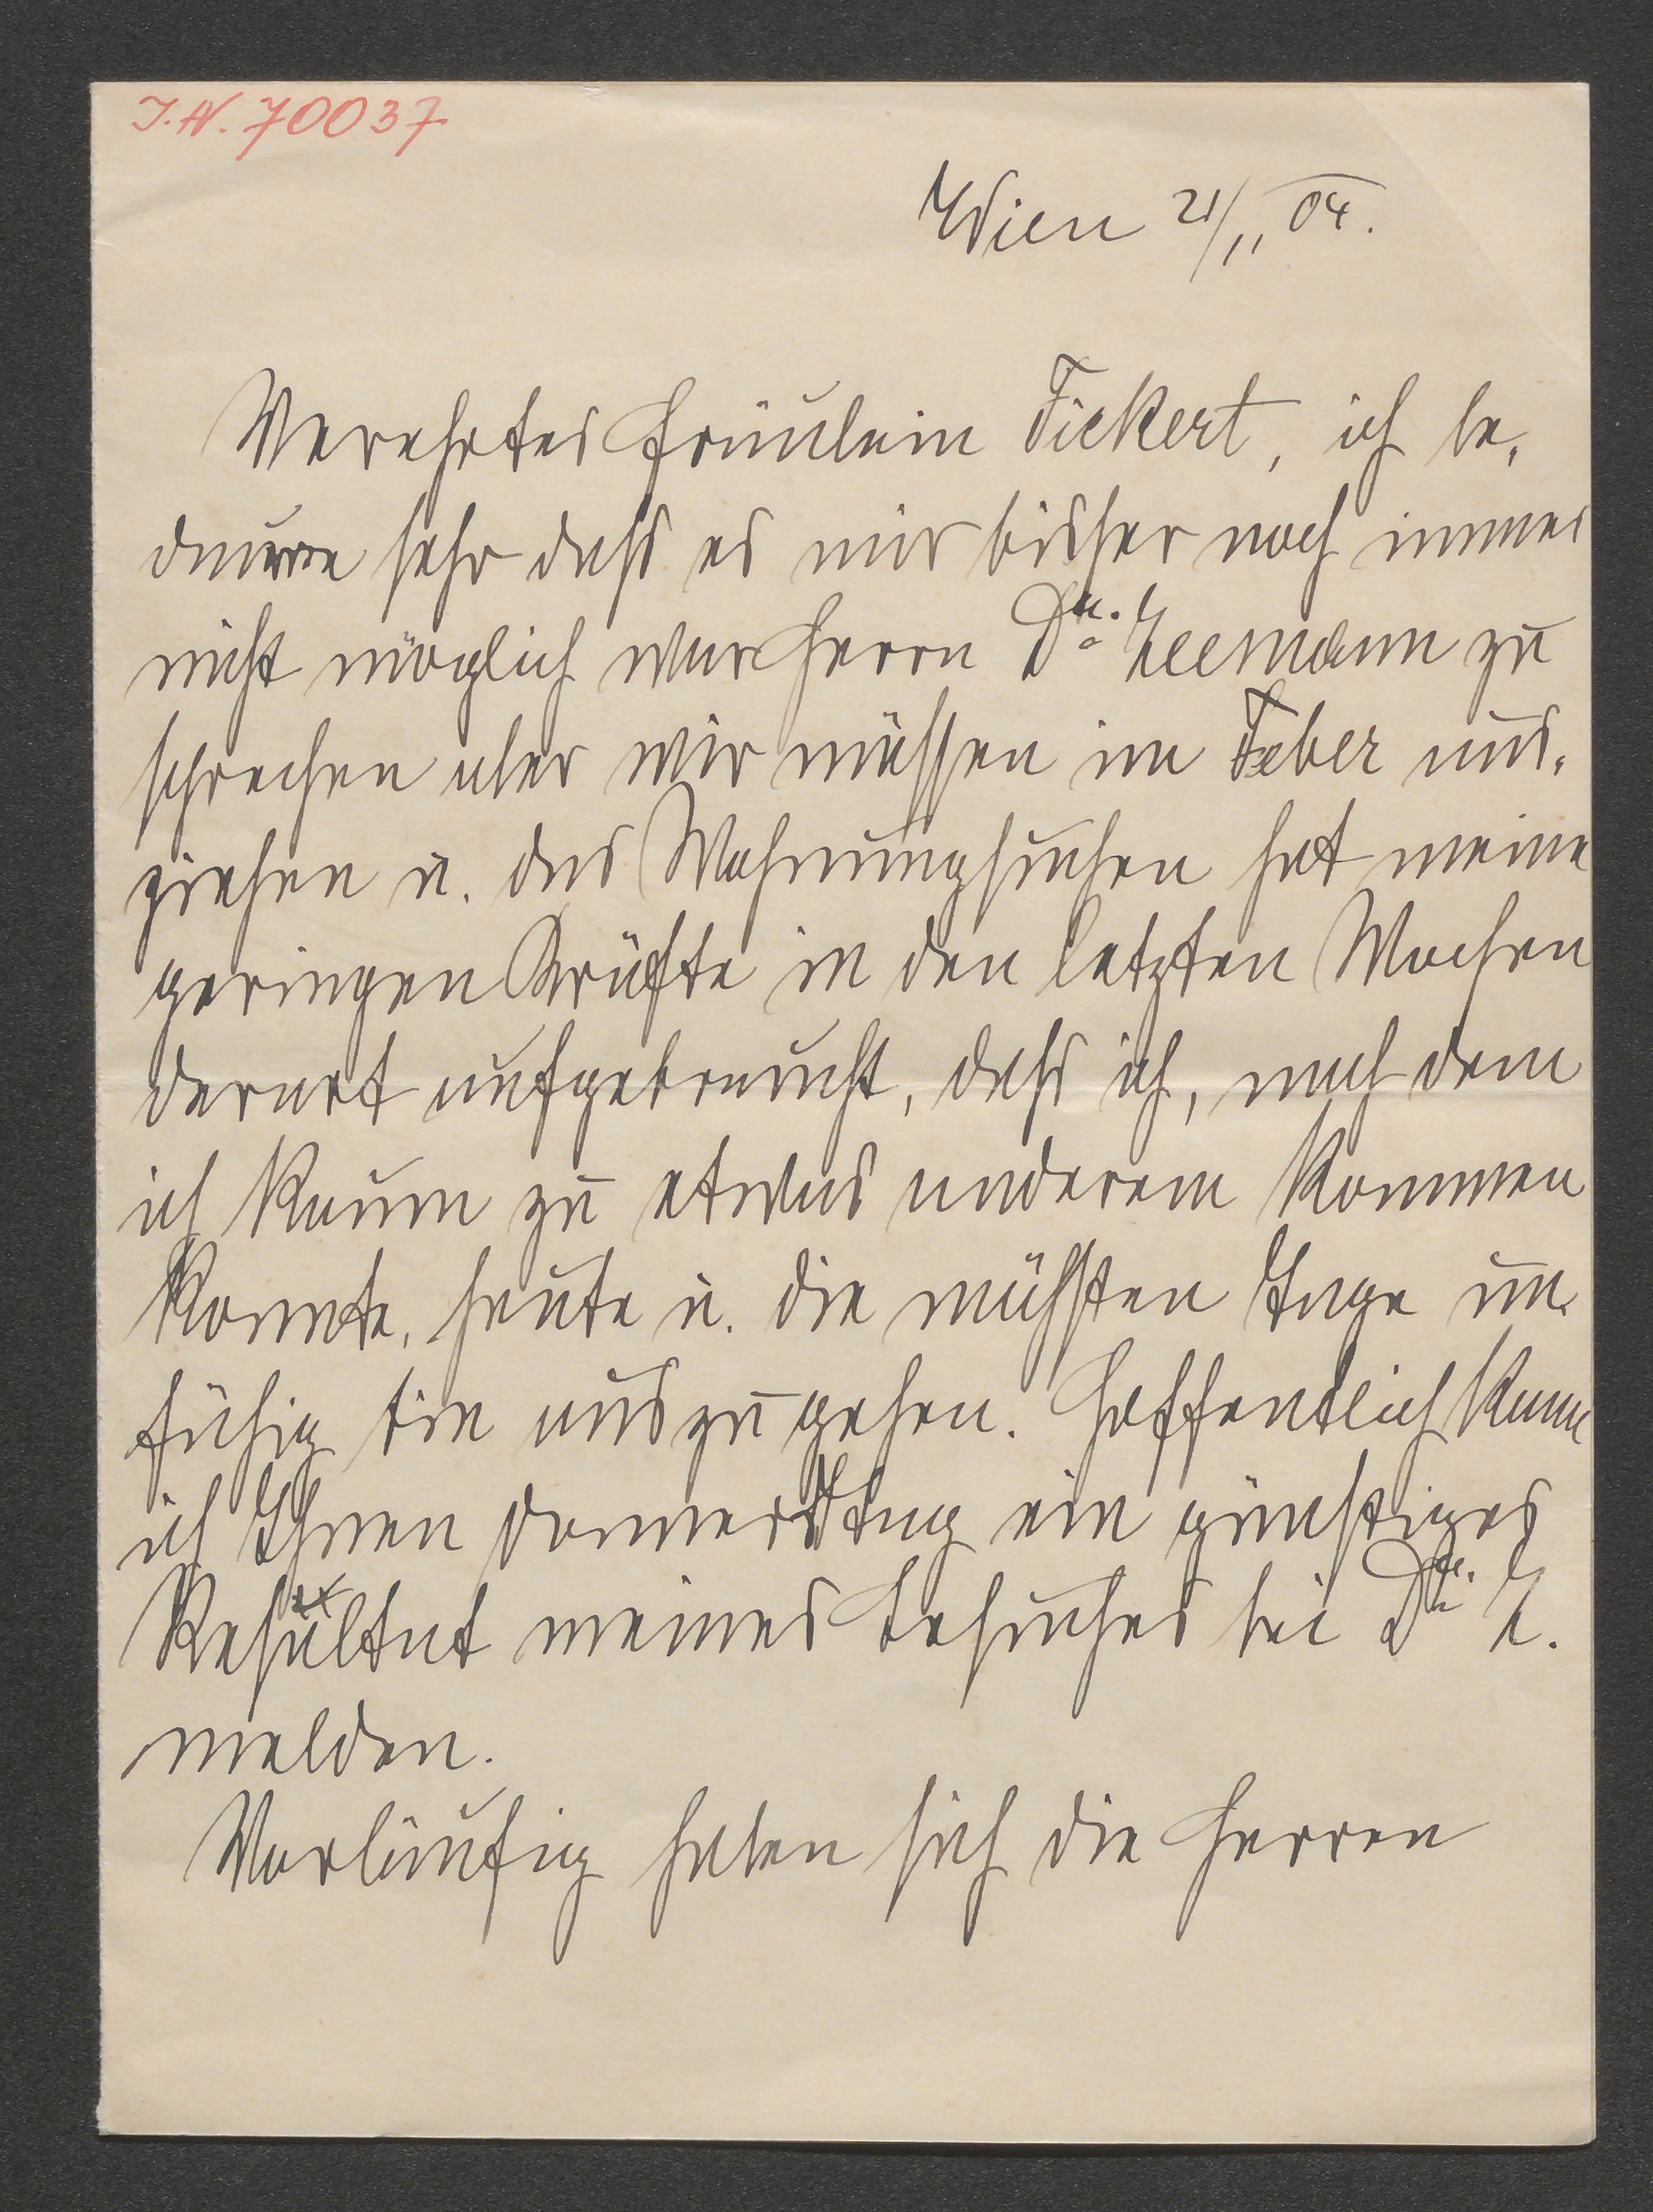 I.N. 70037
Wien 21/11 04.
Verehrtes Fräulein Fickert, ich be-
daure sehr dass es mir bisher noch immer
nicht möglich war Herrn Dr. Zeemann zu
sprechen aber wir müssen im Feber aus-
ziehen u. das Wohnungsuchen hat meine
geringen Kräfte in den letzten Wochen
derart aufgebraucht, dass ich, nach dem
ich kaum zu etwas anderem kommen
konnte, heute u. die nächsten Tage un-
fähig bin auszugehen. Hoffentlich kann
ich Ihnen Donnerstag ein günstiges
Resultat meines Besuches bei Dr. Z.
melden.
Vorläufig haben sich die Herren